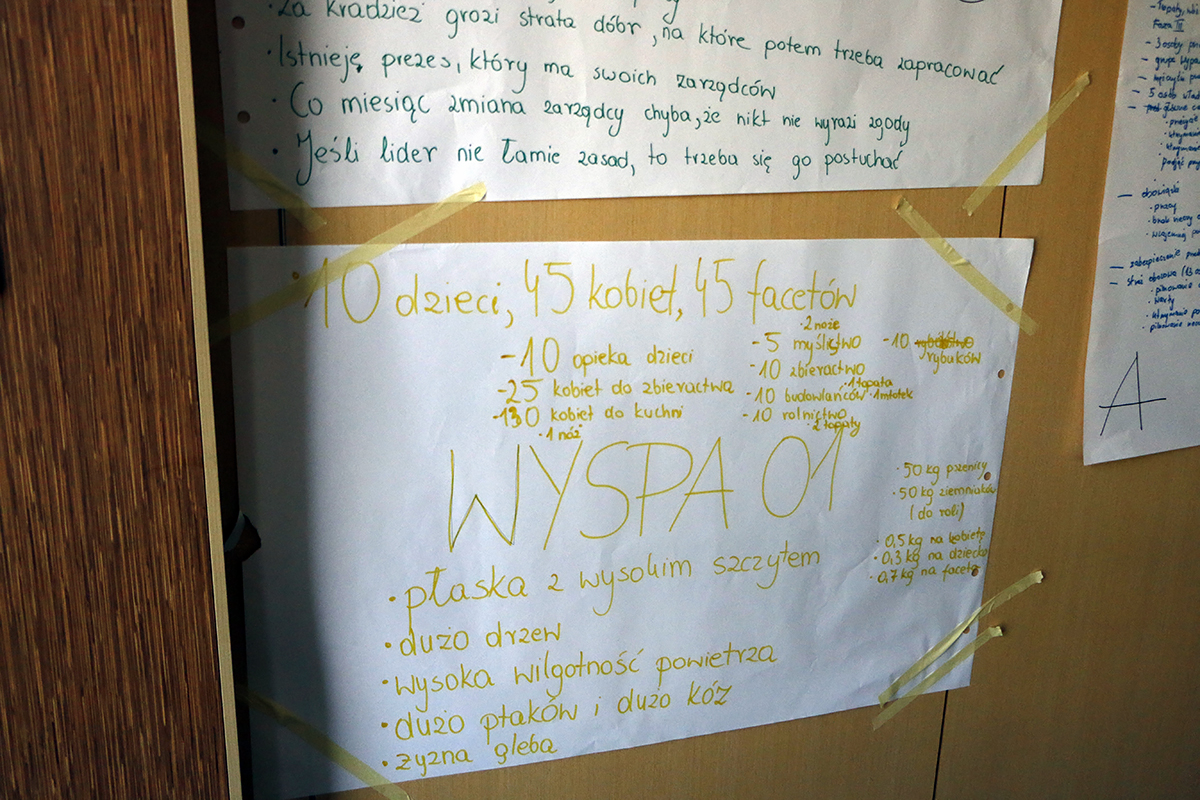 · Za kradzież grozi strata dóbr, na które potem trzeba zapracować
· Istnieję prezes, który ma swoich zarządców
· Co miesiąc zmiana zarządcy chyba, że nikt nie wyrazi zgody
· Jeśli lider nie łamie zasad, to trzeba się go posłuchać
10 dzieci, 45 kobiet, 45 facetów
-10 opieka dzieci
-25 kobiet do zbieractwa
-10 kobiet do kuchni
· 1 nóż
· 2 noże
-5 myślistwo
-10 zbieractwo
· 1 łopata
-10 budowlańców · 1 młotek
-10 rolnictwo
· 2 łopaty
-10 rybuków
WYSPA 01
· 50 kg pszenicy
· 50 kg ziemniaków
(do roli)
· 0,5 kg na kobietę
· 0,3 kg na dziecko
· 0,7 kg na faceta
· płaska z wysokim szczytem
· dużo drzew
· wysoka wilgotność powietrza
· dużo ptaków i dużo kóz
· żyzna gleba
Faza III
- 3 osoby
- grupa
- 5 osób
— obowiązki
· pracy
— zabezpieczenie
· warty
A